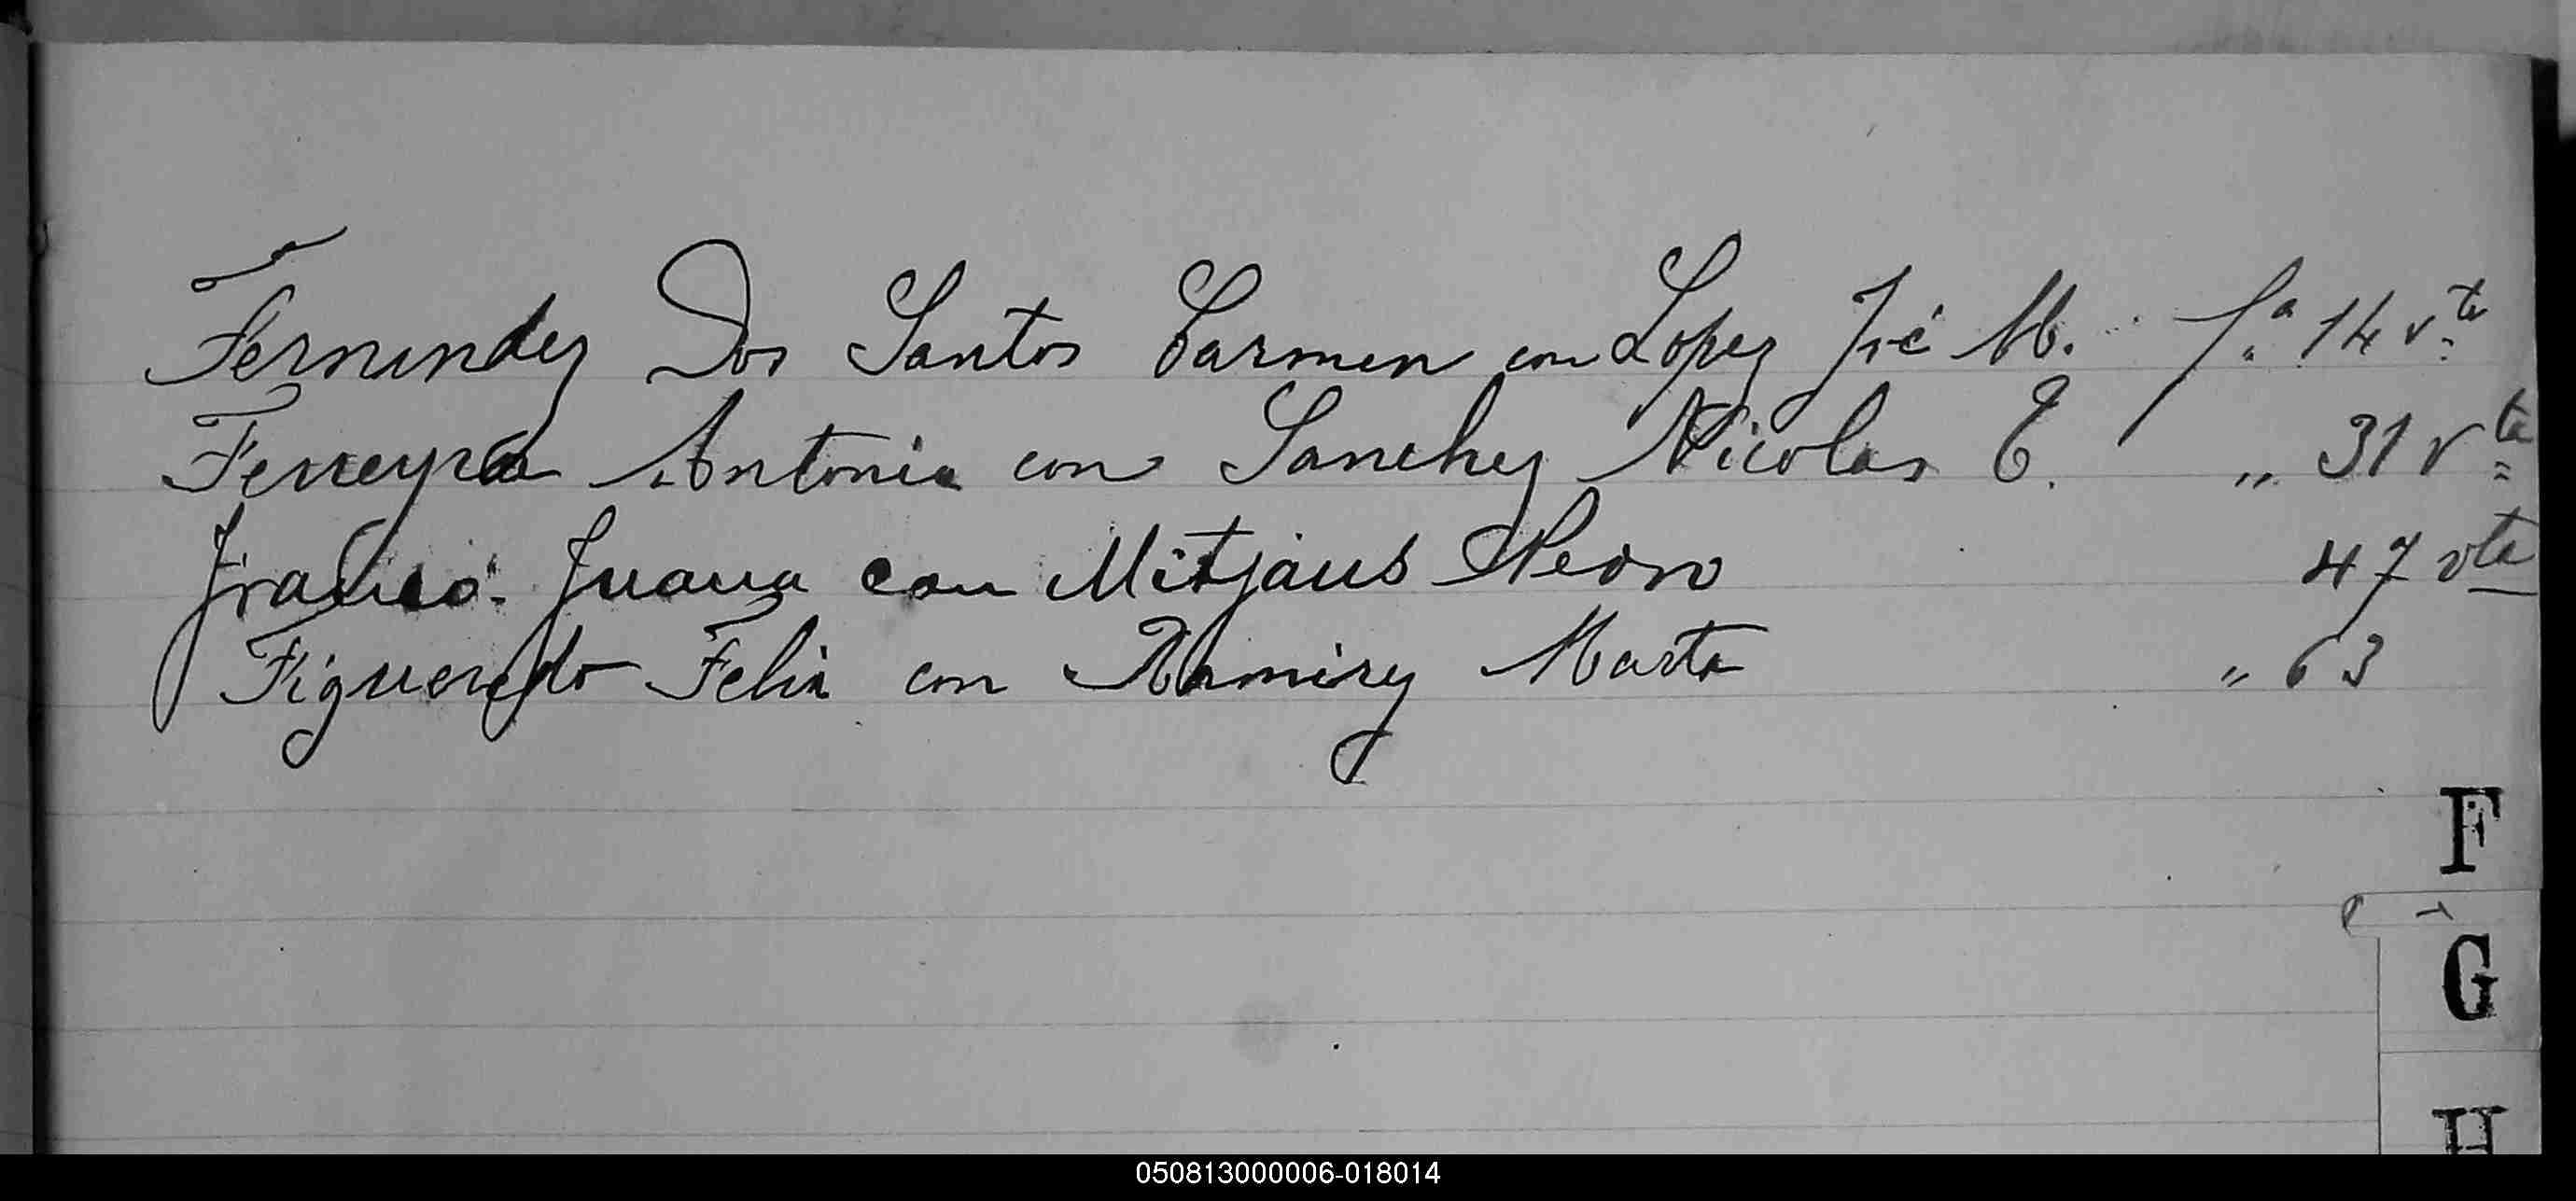 Fernandez Dos Santos Carmen con Lopez José M. fa. 14 vta
Ferreyra Antonia con Sanchez Nicolas E. " 31 vta
Franco. Juana con Mitjans Pedro 47 vta
Figueredo Felix con Ramirez Marta " 63
F
G
H
050813000006-018014